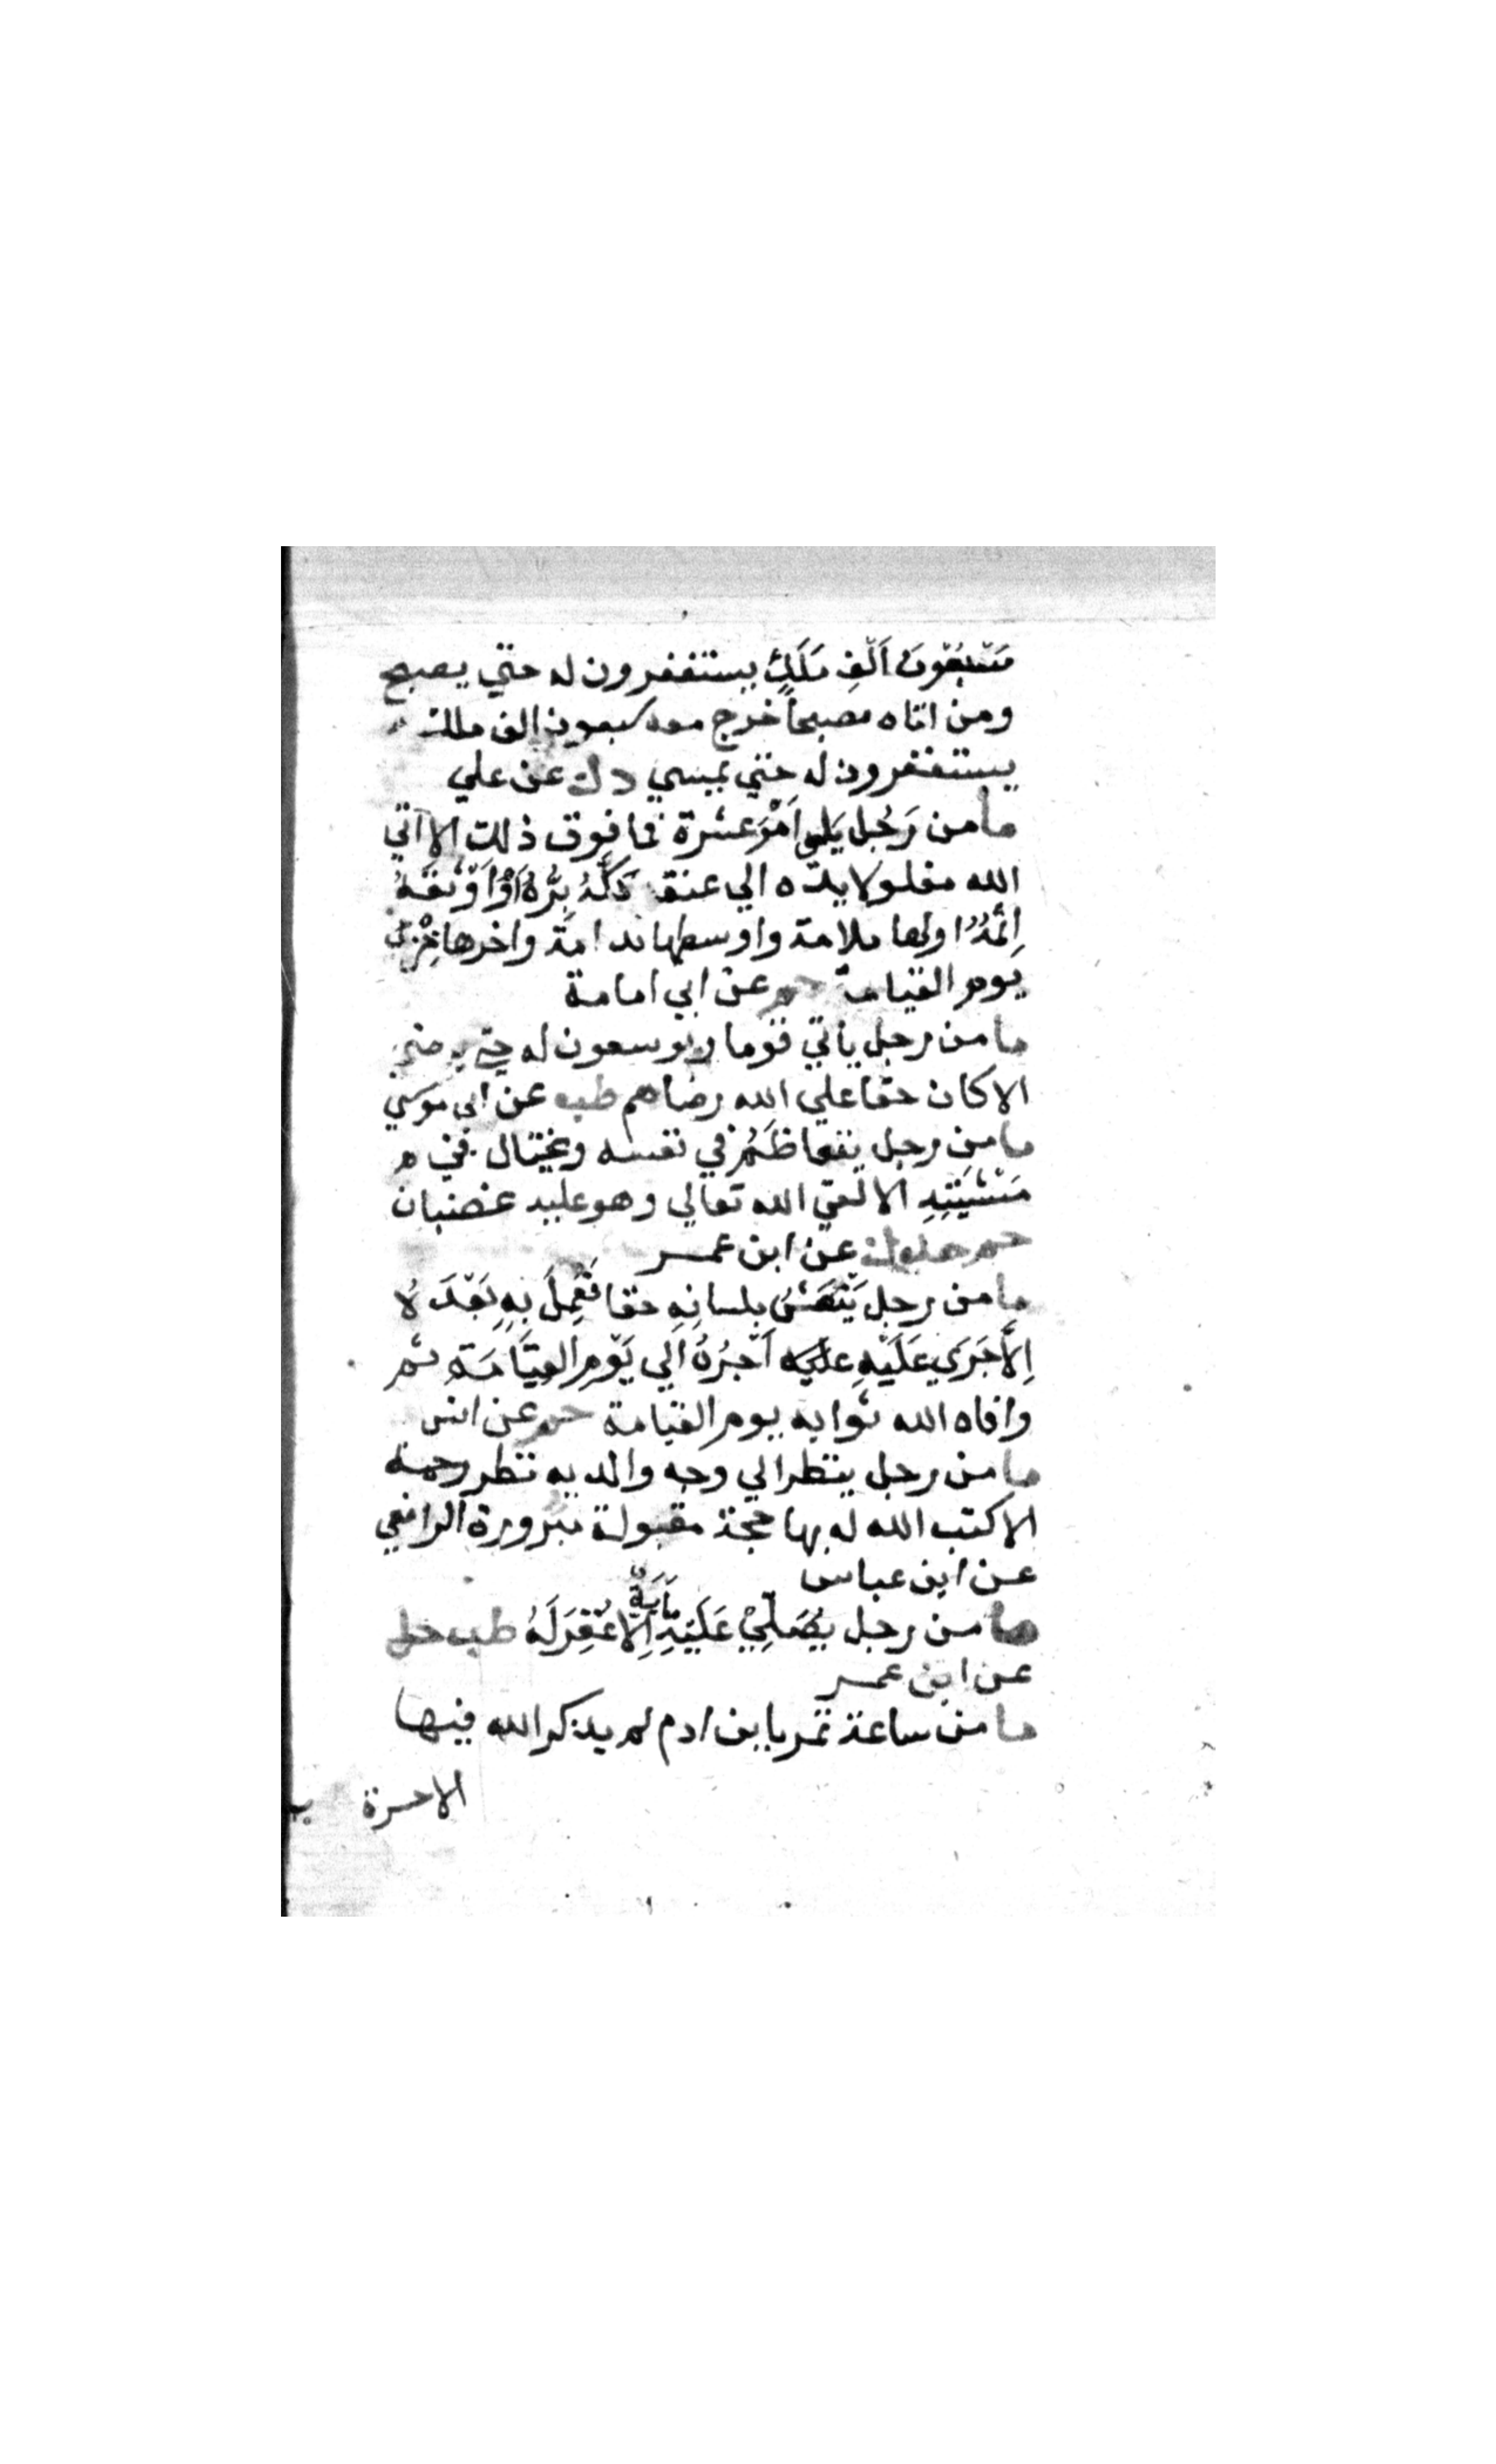 سَبْعُونَ اَلْفِ مَلَكٍ يستغفرون له حتي يصبح
ومن اتاه مصبحاً خرج معه سبعون الف ملك
يستغفرون له حتي يمسي د ك عن علي
ما من رَجُل يَلي اَمْرَ عشرة فما فوق ذلك الا اتي
الله مغلولا يده الي عنقه فَكَّهُ بِرُّهُ اَوْ اَوْثَقَهُ
اِثْمُهُ اولها ملامة واوسطها ندامة واخرها خِزْيٌ
يوم القيامة حم عن ابي امامة
ما من رجل ياتي قوما ويوسعون له حتي يرضي
الا كان حقا علي الله رضاهم طب عن ابي موسي
ما من رجل يتعاظَمُ في نفسه ويختال في م
مَشْيَتِهِ الا لقي الله تعالي وهو عليه غضبان
حم عن ابن عمر
ما من رجل يَنْعَشُ بلسانِهِ حقا فَعُمِلَ بِهِ بَعْدَهُ
اِلاَّ جَرَي عَلَيْهِ عليه اَجْرُهُ اَلي يَوْمِ القِيَامَةِ ثم
وافاه الله ثوابه يوم القيامة حم عن انس
ما من رجل ينظر الي وجه والديه نظر رحمة
الا كتب الله له بها حجة مقبولة مبرورة الرافعي
عن ابن عباس
ما من رجل يُصَلِّيْ عَلَيْهِ مِايَةٌ اِلاَّ غُفِرَ لَهُ طب حل
عن ابن عمر
ما من ساعة تمر بابن ادم لم يذكر الله فيها
الا حسرة